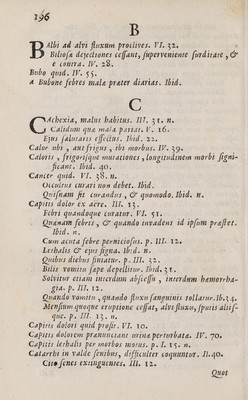 196
B
BAlbi ad alvi fluxum proclives. VI. 32.
Biliosa dejectiones cessant, superveniente surditate, &
e contra. IV. 28.
Bubo quid. IV. 55.
a Bubone febres mala prater diarias. Ibid.
C
CAchexia, malus habitus. III. 31. n.
Calidum qua mala passat. V. 16.
Ejus salutaris effectus. Ibid. 22.
Calor ubi, aut frigus, ibi morbus. IV. 39.
Caloris, frigorisque mutationes, longitudinem morbi signi-
ficant. Ibid. 40.
Cancer quid. VI. 38. n.
Occultus curari non debet. Ibid.
Quisnam sit curandus, & quomodo. Ibid. n.
Capitis dolor ex aëre. III. 13.
Febri quandoque curatur. VI. 51.
Quænam febres, & quando invadens id ipsum præstet.
Ibid. n.
Cum acuta febre perniciosus. p. III. 12.
Lethalis & ejus signa. Ibid. n.
Quibus diebus finiatur. p. III. 32.
Bilis vomitu sæpe depellitur. Ibid. 31.
Solvitur etiam interdum abscessu, interdum hemorrha-
gia. p. III. 12.
Quando vomitu, quando fluxu sanguinis tollatur. Ib. 34.
Mensium quoque eruptione cessat, alvi fluxu, sputis aliis-
que. p. III. 13. n.
Capitis dolori quid prosit. VI. 10.
Capitis dolorem prænunciant urinæ perturbatæ. IV. 70.
Capitis lethalis per morbos motus. p. I. 15. n.
Catarrhi in valde senibus, difficulter coquuntur. II. 40.
Cito senes extinguentes. III. 12.
Quot